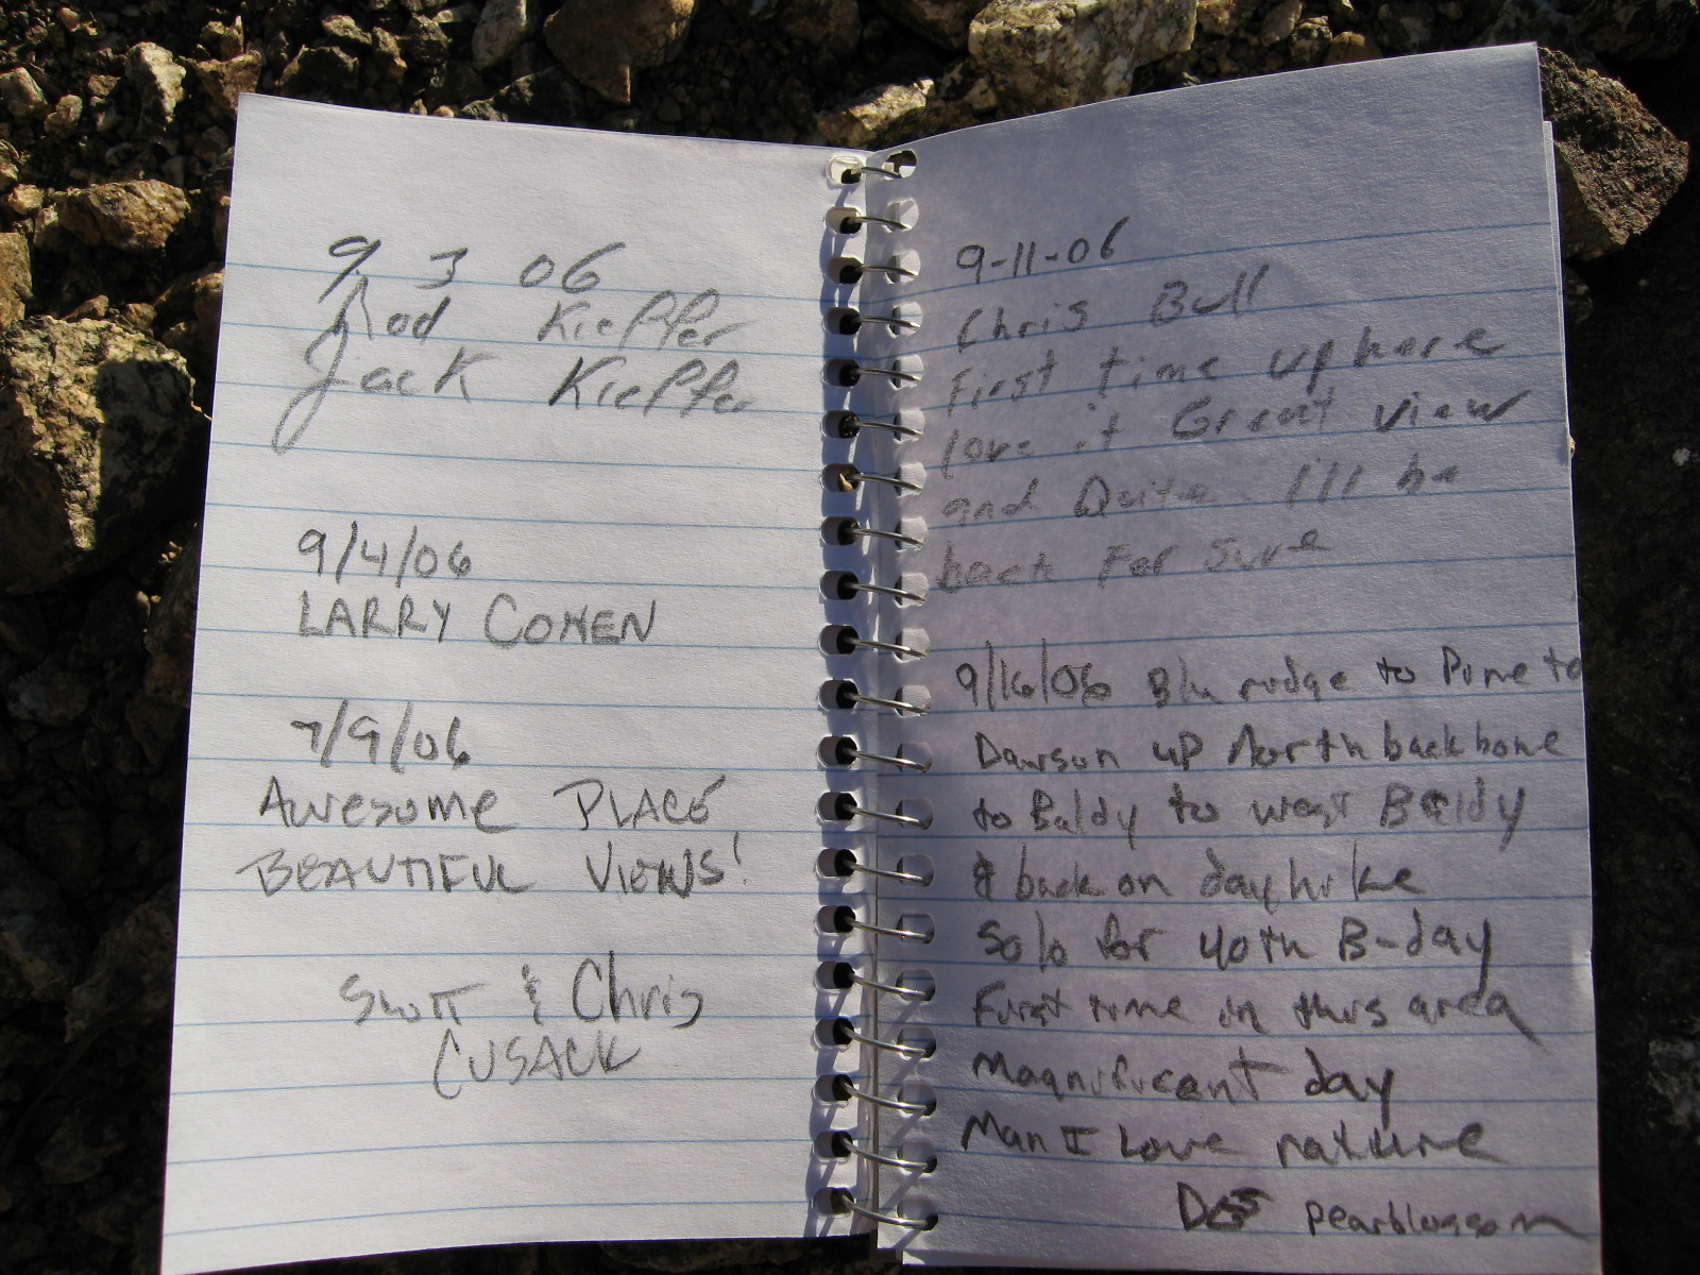 9 3 06
Rod Kieffer
Jack Kieffer
9/4/06
LARRY COHEN
9/9/06
AWESOME PLACE
BEAUTIFUL VIEWS!
Scott & Chris
CUSACK
9-11-06
Chris Bull
First time up here
love it Great view
and Quite I'll be
back For Sure
9/16/06 Blu ridge to Pine to
Dawson up North backbone
to Baldy to west Baldy
& back on day hike
Solo for 40th B-day
First time in this area
Magnificant day
Man I Love nature
pearblossom